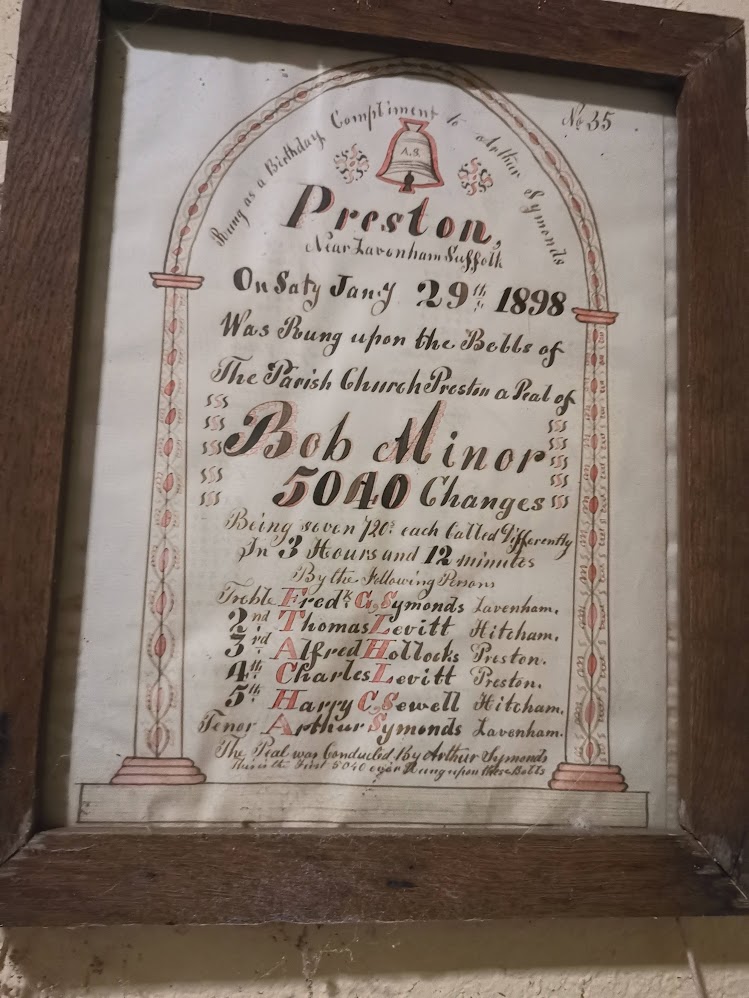 No 35
Rung as a Birthday Compliment to Arthur Symonds
A.S.
Preston,
Near Lavenham Suffolk
On Saty Jany 29th 1898
Was Rung upon the Bells of
The Parish Church Preston a Peal of
Bob Minor
5040 Changes
Being seven 720s each Called Differently
In 3 Hours and 12 minutes
By the Following Persons
Treble Fredk G. Symonds Lavenham.
2nd Thomas Levitt Hitcham.
3rd Alfred Hollocks Preston.
4th Charles Levitt Preston.
5th Harry C. Sewell Hitcham.
Tenor Arthur Symonds Lavenham.
The Peal was Conducted By Arthur Symonds
This is the First 5040 ever Rung upon these Bells